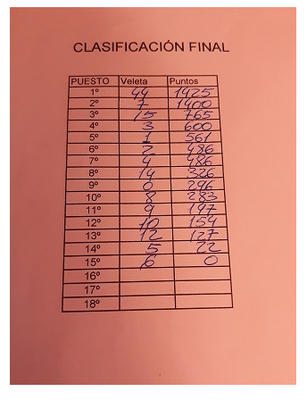 CLASIFICACIÓN FINAL
PUESTO Veleta Puntos
1º 44 1425
2º 7 1400
3º 15 765
4º 3 600
5º 1 561
6º 2 486
7º 4 486
8º 14 326
9º 0 296
10º 8 283
11º 9 197
12º 10 154
13º 12 127
14º 5 22
15º 6 0
16º
17º
18º